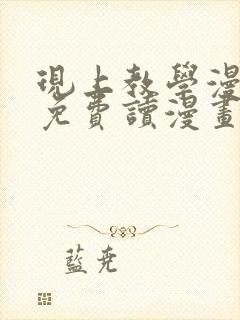 現上教學漫
免費讀漫畫
藍堯